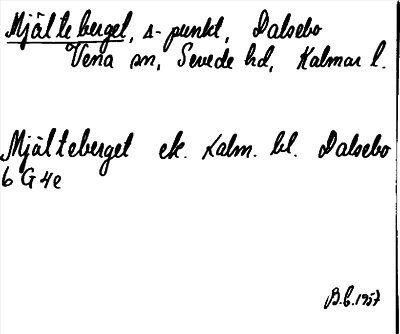 Mjälteberget, s-punkt, Dalsebo
Vena sn, Sevede hd, Kalmar l.
Mjälteberget ek. Kalm. bl. Dalsebo
6 G 4e
B.C. 1957